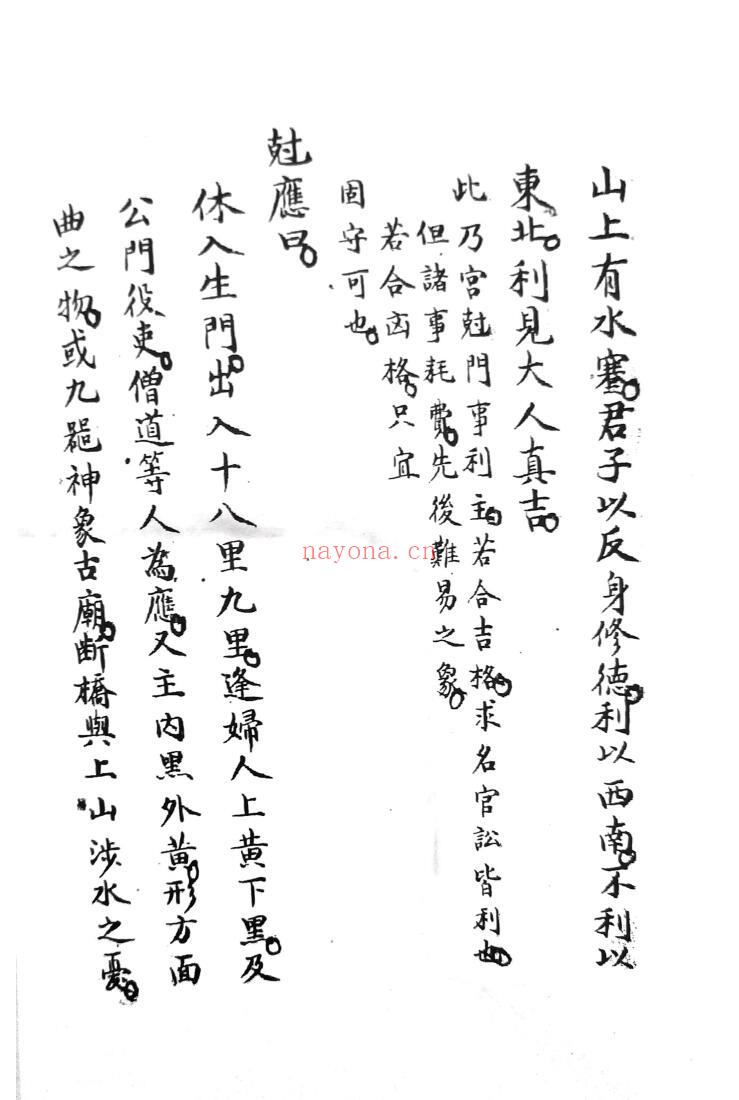 山上有水蹇。君子以反身修德。利以西南。不利以
東北。利見大人真吉。
此乃宮尅門事利主。若合吉格。求名官訟皆利也。
但諸事耗費。先後難易之象。
若合凶格。只宜
固守可也。
尅應曰。
休入生門。出入十八里九里。逢婦人上黃下黑。及
公門役吏。僧道等人為應。又主內黑外黃。形方面
曲之物。或九 神象古廟。断橋與上山涉水之憂。
nayona.cn